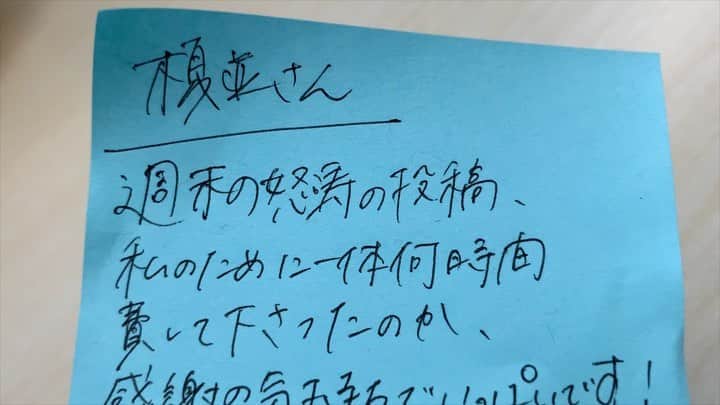 榎並さん
週末の怒涛の投稿、
私のために一体何時間
費して下さったのか、
感謝の気持ちでいっぱいです!